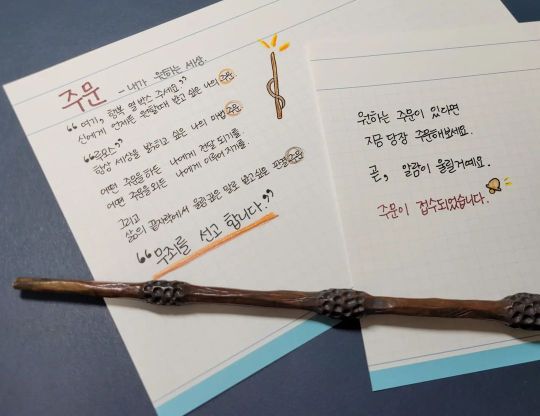 주문 - 내가 원하는 세상.
"여기, 행복 열 박스 주세요."
신에게 언제든 원할때마다 받고 싶은 나의 주문.
"루모스."
항상 세상을 밝히고 싶은 나의 마법 주문.
어떤 주문을 하든 나에게 전달 되기를
어떤 주문을 외든 나에게 이루어 지기를.
그리고
삶의 끝자락에서 울림 같은 말로 받고싶은 판결 주문
"무죄를 선고 합니다."
원하는 주문이 있다면
지금 당장 주문해보세요.
곧, 알람이 울릴거예요.
주문이 접수되었습니다.